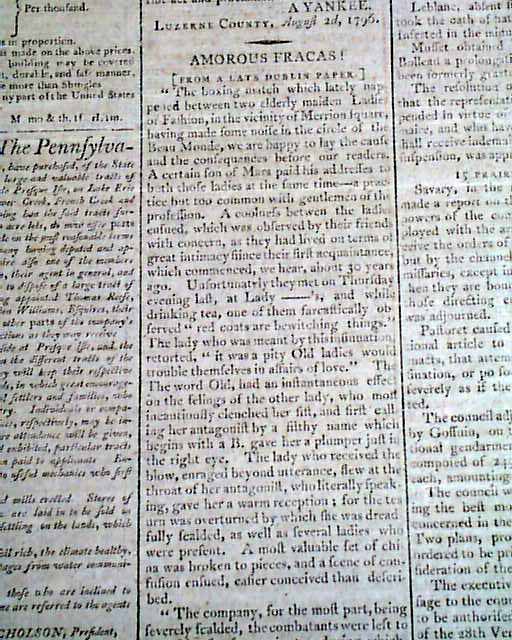 Per thousand.
in proportion.
is made on the above prices.
building may be covered
t, durable, and safe manner.
e more than Shingles
ny part of the United States
M mo & th. 1f d. 1m.
The Pennsylva-
have purchased, of the State
large and valuable tracts of
Presque Isle, on Lake Erie
French Creek and
on the most reasonable terms
their agent in general, and
to dispose of a large tract of
ing appointed Thomas Reese,
Williams, Esquires, their
other parts of the company's
Presqu' isle, and the
the different tracts of the
they will keep their respective
in which great encourage-
settlers and families, who
Individuals or compa-
respectively, may be in-
attendance will be given,
exhibited, particular tracts
on paid to applicants
useful mechanics who first
mills erected. Stores of
are laid in to be sold on
settling on the lands, which
rich, the climate healthy,
from water communi-
those who are inclined to
are referred to the agents
CHOLSON, President,
A YANKEE.
LUZERNE COUNTY, August 2d, 1796.
AMOROUS FRACAS!
[FROM A LATE DUBLIN PAPER.]
"The boxing match which lately hap-
pened between two elderly maiden Ladies
of Fashion, in the vicinity of Merrion Square,
having made some noise in the circle of the
Beau Monde, we are happy to lay the cause
and the consequences before our readers.
A certain son of Mars paid his addresses to
both those ladies at the same time—a prac-
tice but too common with gentlemen of the
profession. A coolness betwen the ladies
ensued, which was observed by their friends
with concern, as they had lived on terms of
great intimacy since their first acquaintance,
which commenced, we hear, about 30 years
ago. Unfortunately they met on Thursday
evening last, at Lady ——'s, and while
drinking tea, one of them sarcastically ob-
served "red coats are bewitching things."
The lady who was meant by this insinuation,
retorted, "it was a pity Old ladies would
trouble themselves in affairs of love." The
The word Old, had an instantaneous effect
on the felings of the other lady, who most
incautiously clenched her fist, and first call
ing her antagonist by a filthy name which
begins with a B. gave her a plumper just in
the right eye. The lady who received the
blow, enraged beyond utterance, flew at the
throat of her antagonist, who literally speak-
ing, gave her a warm reception; for the tea
urn was overturned by which she was dread
fully scalded, as well as several ladies who
were present. A most valuable set of chi
na was broken to pieces, and a scene of con-
fusion ensued, easier conceived than descri-
bed.
"The company, for the most part, being
severely scalded, the combatants were left to
Leblanc, absent
took the oath of hat
inserted in the minu
Musset obtained
Balleau a prolongati
been formerly grant
The resolution o
that the representati
pended in virtue o
naire, and who have
shall receive indemn
suspension, was app
15 PRAIRI
Savary, in the
made a report on th
powers of the com
ployed with the a
ceive the orders of
but by the channel
missaries, except in
hen they are bou
those directing c
was adjourned.
Pastoret caused
tional article to
nacts, that attem
sination, or po so
severely as if the
ted.
The council adj
by Gossuin, on
tional gendarmer
composed of 24
each, amounting
The council w
ing the best m
concerned in the
Two plans, pro
ordered to be pri
sideration of the
The executive
sage to the coun
to be authorised
on the 28th Ve